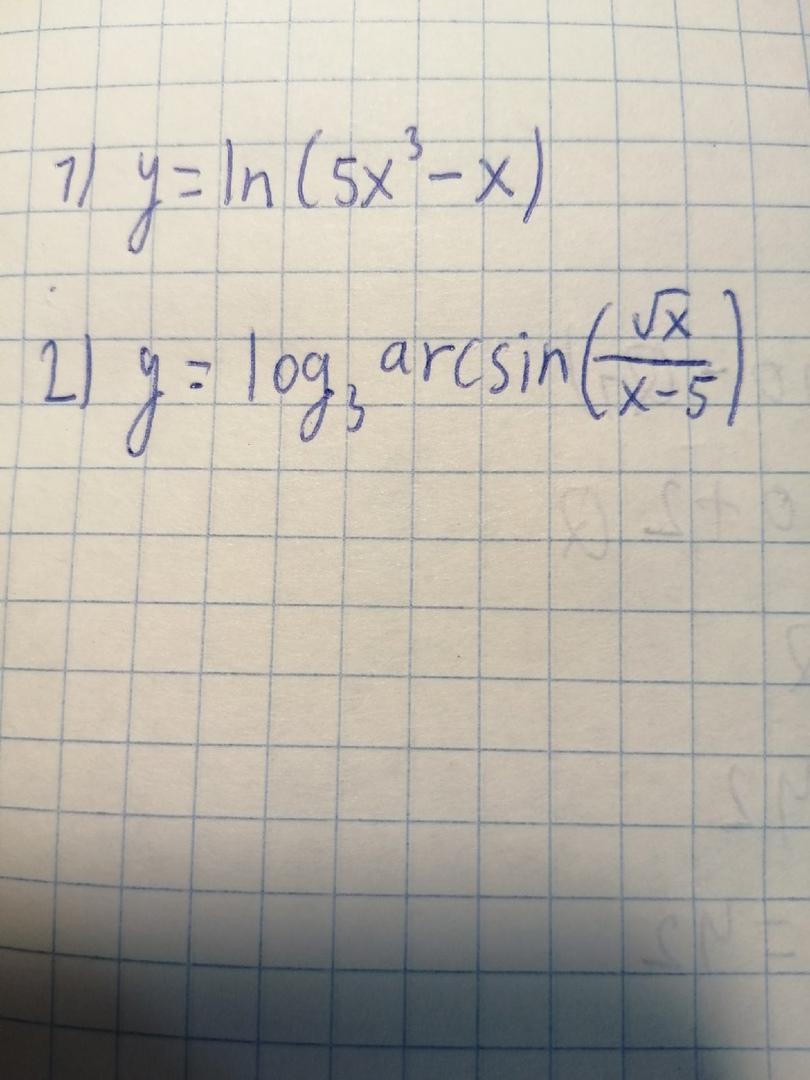 1) y = ln(5x³ - x)
2) y = log₃ arcsin(√x / x-5)